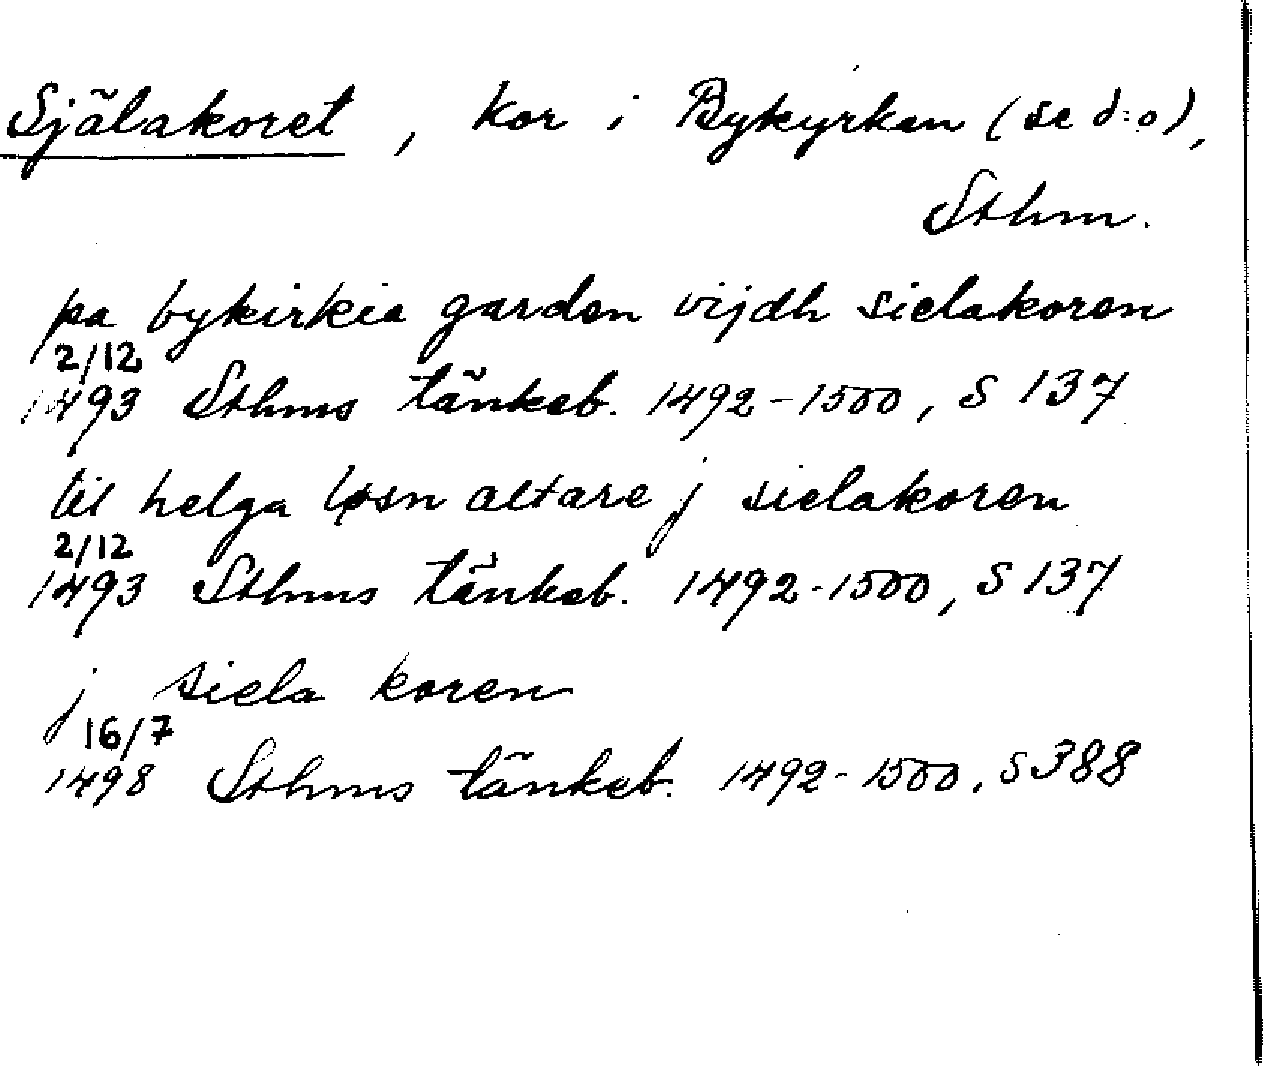 Själakoret, kor i Bykyrkan (se d:o),
Sthm.
pa bykirkia garden vijdh sielakoren
2/12
1493 Sthms tänkeb. 1492-1500, S 137
til helga løsn altare j sielakoren
2/12
1493 Sthms tänkeb. 1492-1500, S 137
j siela koren
16/7
1498 Sthms tänkeb. 1492-1500, S 388